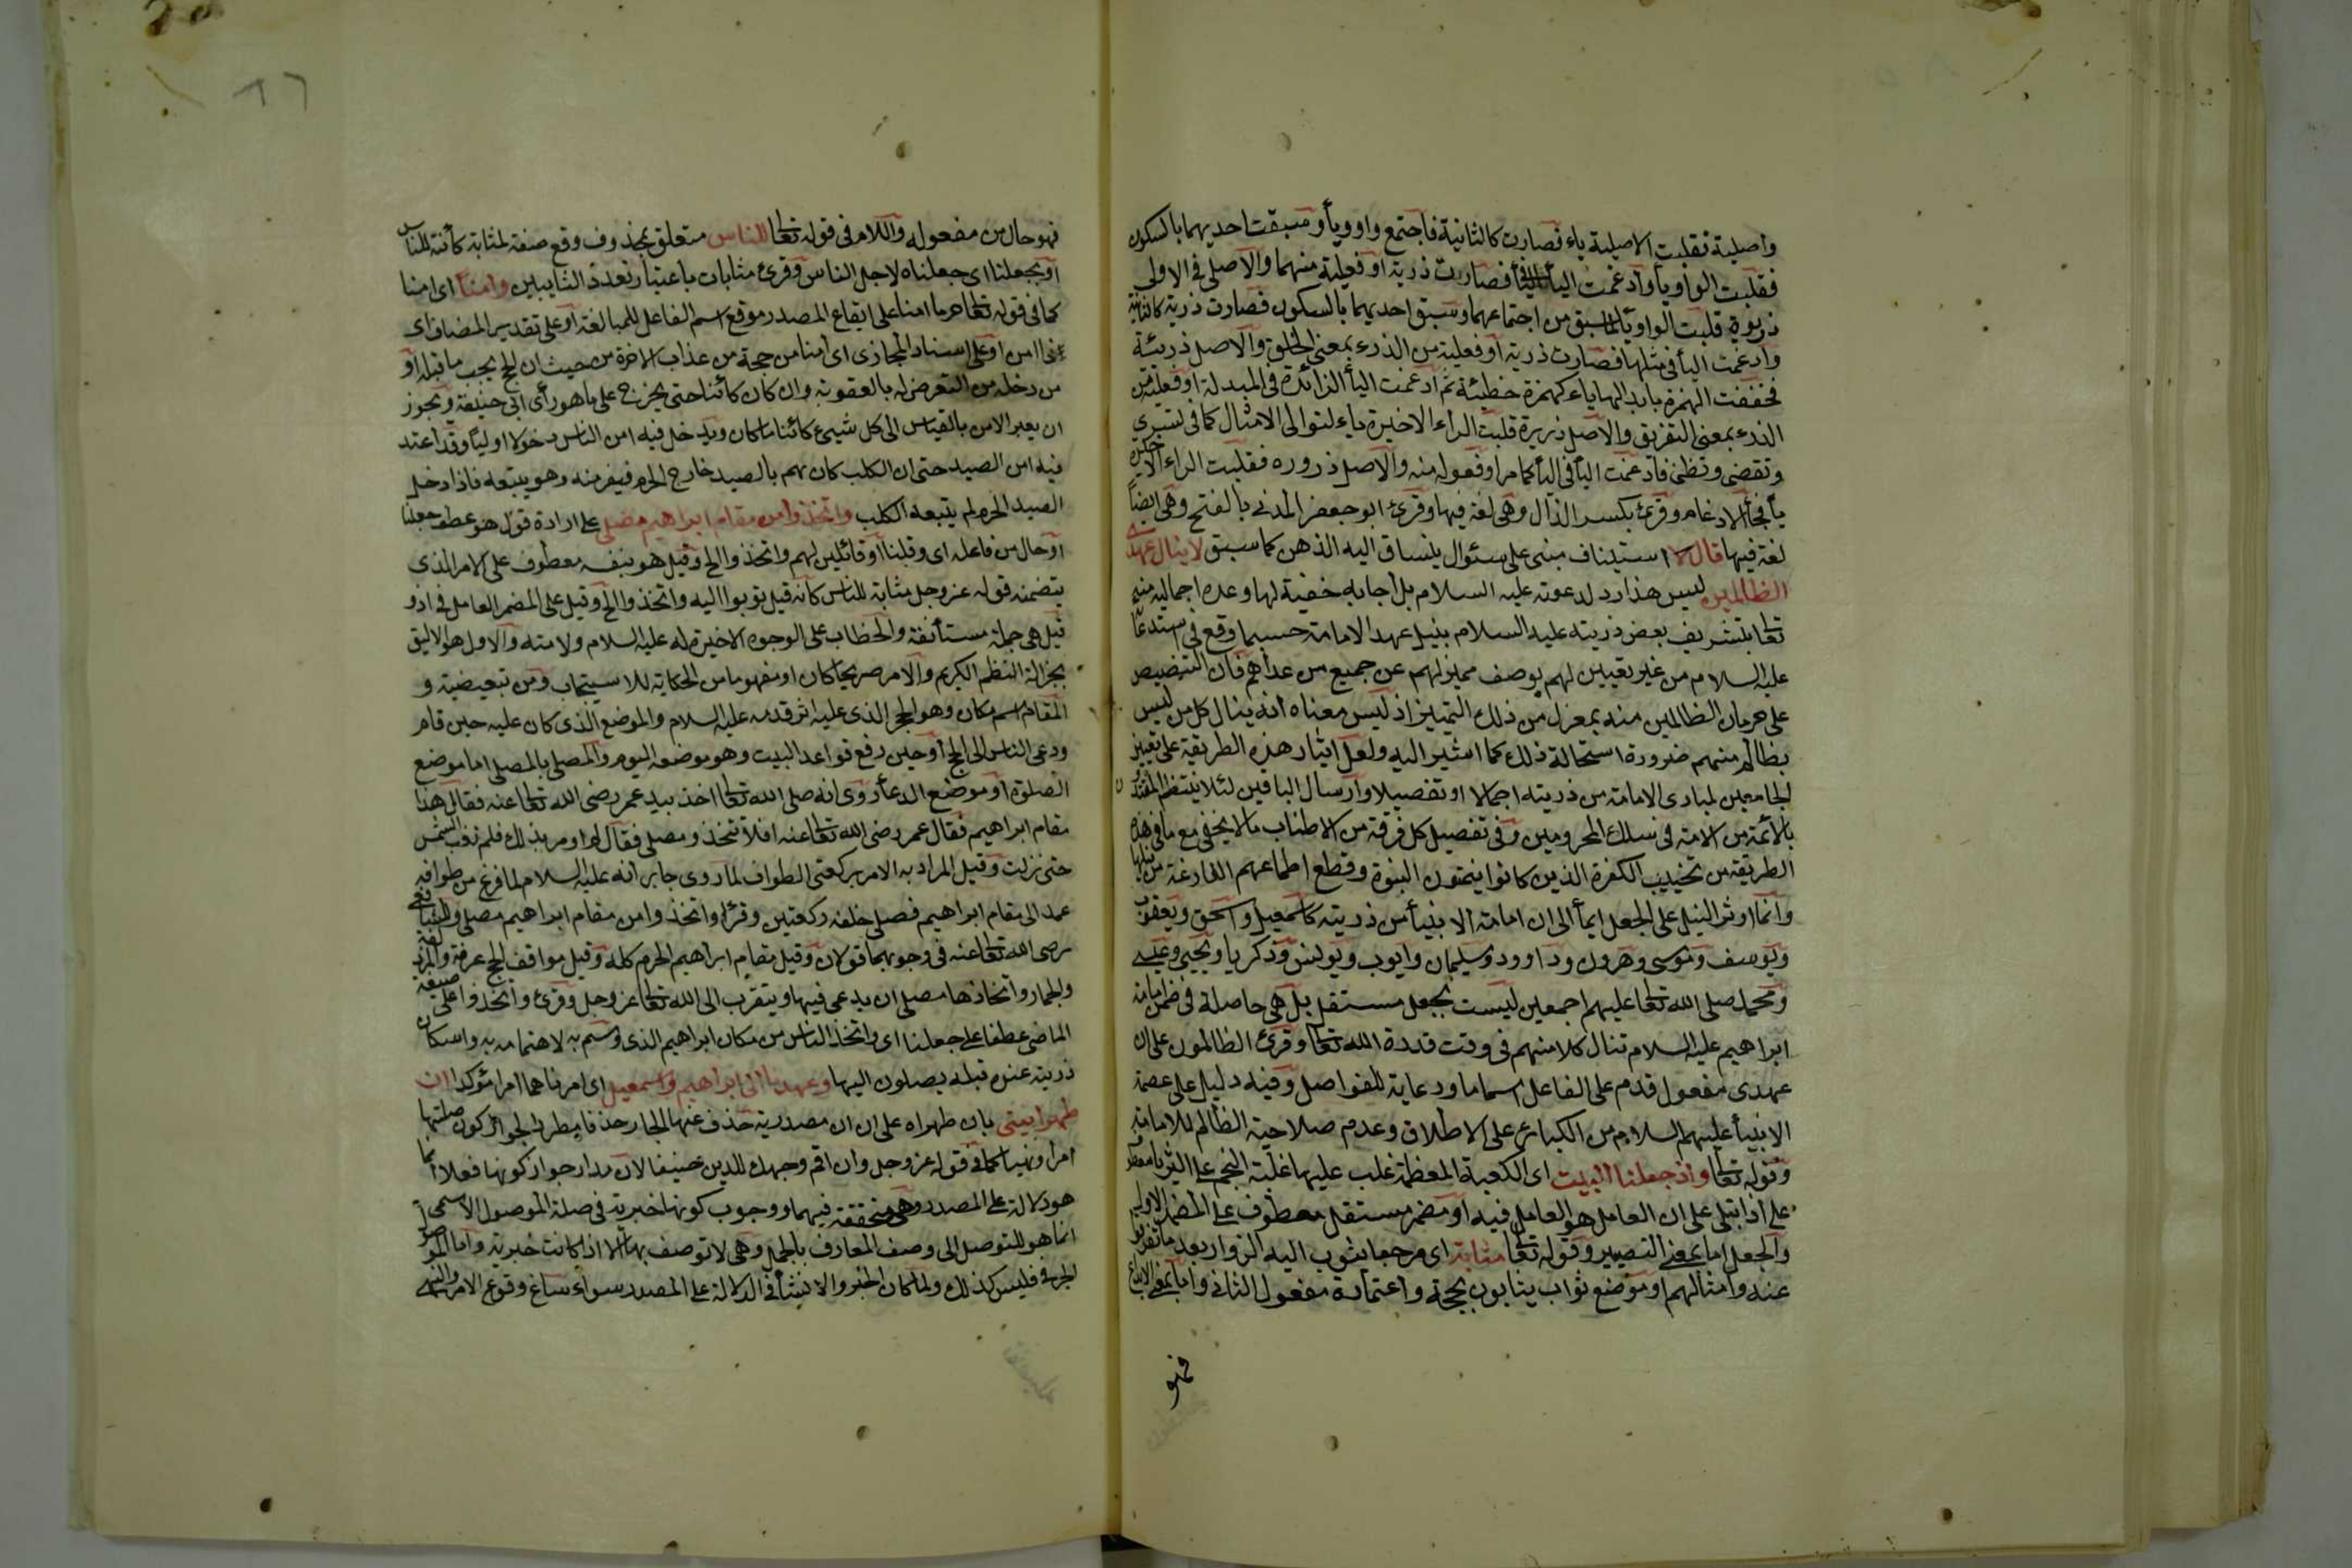 واصلية فقلبت الاصلية ياء فصارت كالثانية فاجتمع واو وياء وسبقت احديهما بالسكون
فقلبت الواو ياء وادغمت الياء فى الياء فصارت ذرية او فعلية منهما والاصل فى الاولى
ذريوة قلبت الواو ياء لما سبق من اجتماعهما وسبق احديهما بالسكون فصارت ذرية كالثانية
وادغمت اليأ فى مثلها فصارت ذرية او فعيلة من الذرء بمعنى الخلق والاصل ذريئة
فخففت الهمزة بابدالها ياء كهمزة خطيئة ثم ادغمت اليأ الزائدة فى المبدلة او فعلية من
الذرء بمعنى التفريق والاصل ذريرة قلبت الراء الاخيرة ياء لتوالى الامثال كما فى تسرى
وتقضى وتظنى فادغمت اليأ فى اليأ كما مر او فعوله منه والاصل ذروره فقلبت الراء الاخيرة
يأ فجأ الادغام وقرئ بكسر الذال وهى لغة فيها وقرئ ابو جعفر المدنى بالفتح وهى ايضاً
لغة فيها قال لا استيناف مبنى على سئوال ينساق اليه الذهن كما سبق لا ينال عهدى
الظالمين ليس هذا رد لدعوته عليه السلام بل اجابه خفية لها وعده اجمالية منه
تعا بتشريف بعض ذريته عليه السلام بنيل عهد الامامة حسبما وقع فى استدعا
عليه السلام من غير تعيين لهم بوصف مميز لهم عن جميع من عداهم فان التنصيص
على حرمان الظالمين منه بمعزل من ذلك التمييز اذ ليس معناه انه ينال كل من ليس
بظالم منهم ضرورة استحالة ذلك كما اشير اليه ولعل ايثار هذه الطريقة على تعيين
الجامعين لمبادى الامامة من ذريته اجمالا او تفصيلا وارسال الباقين لئلا ينتظم المقتدون
بالأئمة من الامة فى سلك المحرومين وفى تفصيل كل فرقة من الاطناب ما لا يخفى مع ما فى هذه
الطريقة من تخييب الكفرة الذين كانوا يتمنون النبوة وقطع اطماعهم الفارغة من نيلها
وانما اوثر النيل على الجعل ايمأ الى ان امامة الانبيأ من ذريته كاسمعيل واسحق ويعقوب
ويوسف وموسى وهرون وداوود وسليمان وايوب ويونس وذكريا ويحيى وعيسى
ومحمد صلى الله تعا عليهم اجمعين ليست بجعل مستقل بل هى حاصلة فى ضمن امامة
ابراهيم عليه السلام تنال كلا منهم فى وقت قدره الله تعا وقرئ الظالمون على ان
عهدى مفعول قدم على الفاعل اهتماما ورعاية للفواصل وفيه دليل على عصمة
الانبيأ عليهم السلام من الكبائر على الاطلاق وعدم صلاحية الظالم للامامة
وقوله تعا واذ جعلنا البيت اى الكعبة المعظمة غلب عليها غلبة النجم على الثريا معطوف
على اذ ابتلى على ان العامل هو العامل فيه او مضمر مستقل معطوف على المضمر الاول
والجعل اما بمعنى التصيير وقوله تعا مثابة اى مرجعا يثوب اليه الزوار بعد ما تفرقوا
عنه وامثالهم او موضع ثواب يثابون بحجه واعتماره مفعول الثانى واما بمعنى الابداع
فهو
فهو حال من مفعوله واللام فى قوله تعا للناس متعلق بمحذوف وقع صفة لمثابة كائنة للناس
او بجعلنا اى جعلناه لاجل الناس وقرئ مثابات باعتبار تعدد الثايبين وامنا اى امنا
كما فى قوله تعا حرما امنا على ايقاع المصدر موقع اسم الفاعل للمبالغة او على تقدير المضاف اى
ذا امن او على اسناد المجازى اى امنا من حجه من عذاب الاخرة من حيث ان الحج يجب ما قبله او
من دخله من التعرض له بالعقوبة وان كان كائنا حتى يخرج على ما هو رأى ابى حنيفة ويجوز
ان يعبر الامن بالقياس الى كل شيئ كائنا ما كان ويدخل فيه امن الناس دخولا اوليأ وقد اعتد
فيه امن الصيد حتى ان الكلب كان يهم بالصيد خارج الحرم فيفر منه وهو يتبعه فاذا دخل
الصيد الحرم لم يتبعه الكلب واتخذوا من مقام ابراهيم مصلى على ارادة قول هو عطف جعلنا
او حال من فاعله اى وقلنا او قائلين لهم واتخذوا الخ وقيل هو بنفسه معطوف على الامر الذى
يتضمنه قوله عز وجل مثابة للناس كأنه قيل ثوبوا اليه واتخذوا الخ وقيل على المضمر العامل فى اذ و
قيل هى جملة مستأنفة والخطاب على الوجوه الاخيرة له عليه السلام ولامته والاول هو الاليق
بجزالة النظم الكريم والامر صريحا كان او مفهوما من الحكاية للاستحباب ومن تبعيضية و
المقام اسم مكان وهو الحجر الذى عليه اثر قدمه عليه السلام والموضع الذى كان عليه حين قام
ودعى الناس الى الحج او حين رفع قواعد البيت وهو موضعه اليوم والمصلى بالمصلى اما موضع
الصلوة او موضع الدعأ روى انه صلى الله تعا اخذ بيد عمر رضى الله تعا عنه فقال هذا
مقام ابراهيم فقال عمر رضى الله تعا عنه افلا نتخذه مصلى فقال لم اومر بذلك فلم تغب الشمس
حتى نزلت وقيل المراد به الامر بركعتى الطواف لما روى جابر انه عليه السلام لما فرغ من طوافه
عمد الى مقام ابراهيم فصلى خلفه ركعتين وقرأ واتخذوا من مقام ابراهيم مصلى وللشافعى
رضى الله تعا عنه فى وجوبهما قولان وقيل مقام ابراهيم الحرم كله وقيل مواقف الحج عرفة والمزدلفة
والجمار واتخاذها مصلى ان يدعى فيها ويتقرب الى الله تعا عز وجل وقرئ واتخذوا على صيغة
الماضى عطفا على جعلنا اى واتخذ الناس من مكان ابراهيم الذى وسم به لاهتمامه به واسكان
ذريته عنده قبله يصلون اليها وعهدنا الى ابراهيم واسمعيل اى امرناهما امرا مؤكدا ان
طهرا بيتى بان طهراه على ان ان مصدرية حذف عنها الجار حذفا مطردا لجواز كون صلتها
امرا ونهيا كما فى قوله عز وجل وان اقم وجهك للدين حنيفا لان مدار جواز كونها فعلا انما
هو دلالة على المصدر وهى متحققة فيهما ووجوب كونها خبرية فى صلة الموصول الاسمى
انما هو للتوصل الى وصف المعارف بالجمل وهى لا توصف بها الا اذا كانت خبرية واما الموصول
الحرفى فليس كذلك ولما كان الخبر والانشأ فى الدلالة على المصدر سواء ساغ وقوع الامر والنهى